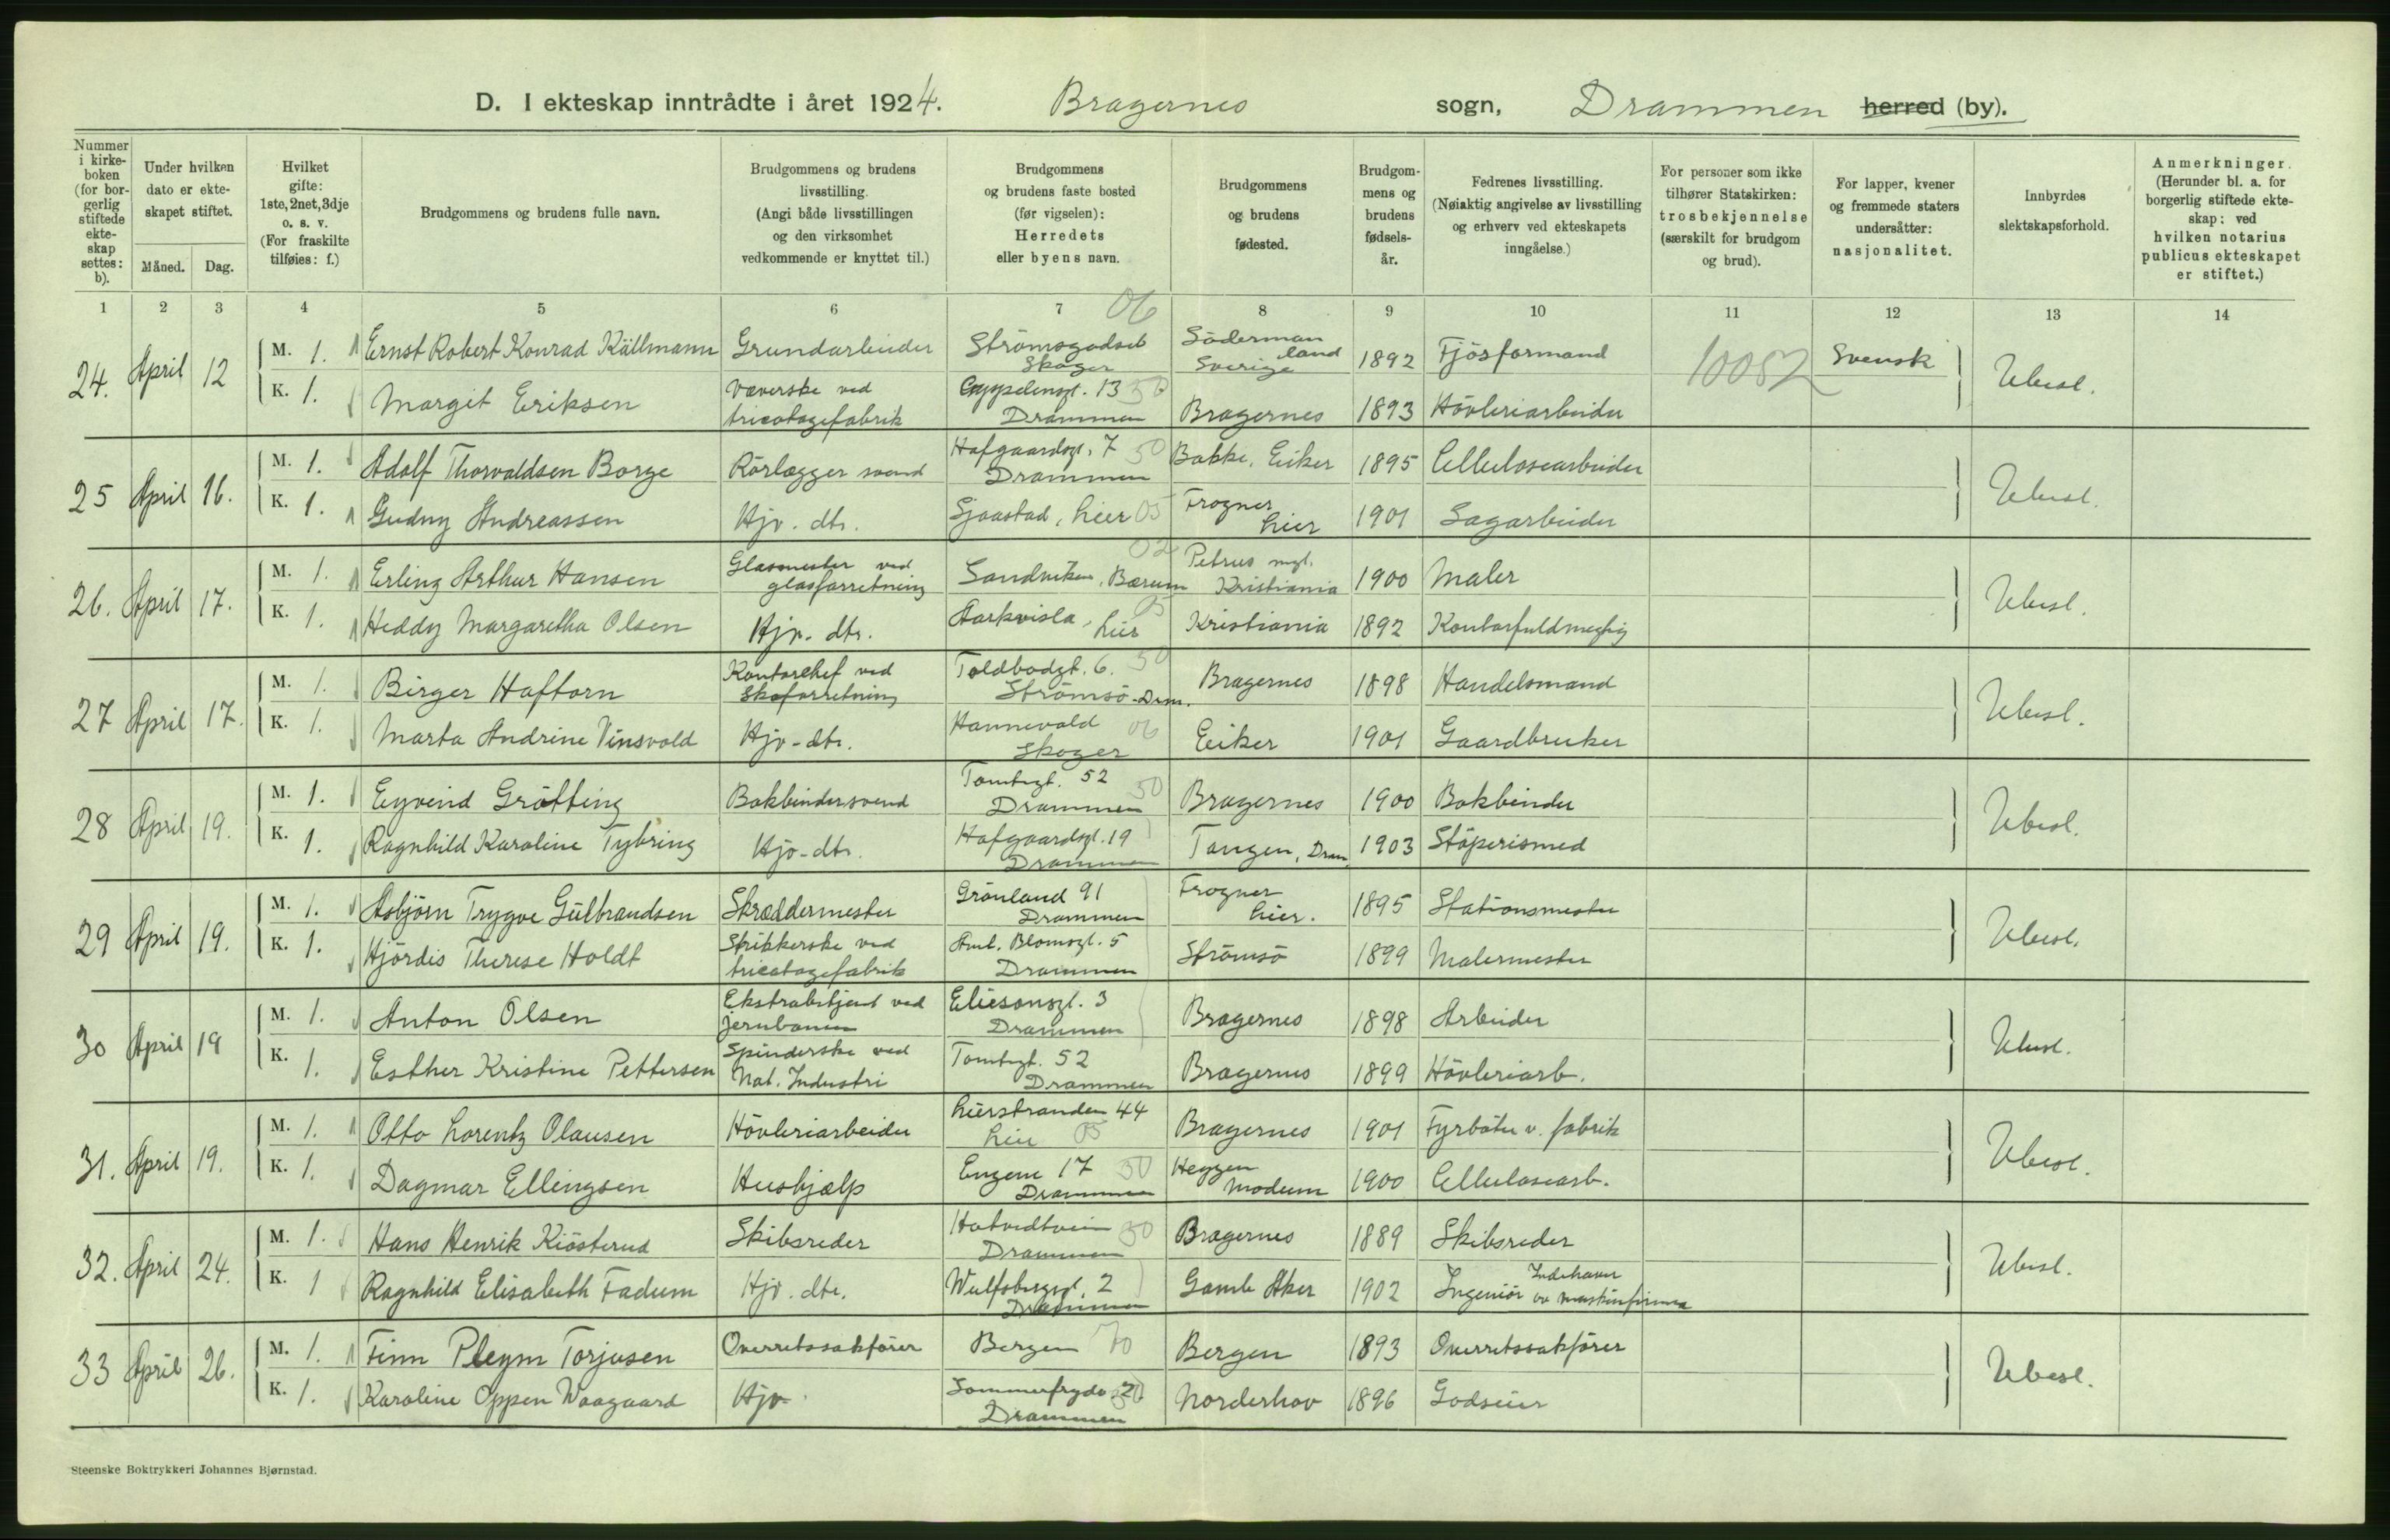 D. I ekteskap inntrådte i året 1924. Bragernes sogn, Drammen herred (by).
Nummer i kirkeboken (for borgerlig stiftede ekteskap settes: b).
Under hvilken dato er ekteskapet stiftet.
Måned. Dag.
Hvilket gifte: 1ste, 2net, 3dje o. s. v. (For fraskilte tilføies: f.)
Brudgommens og brudens fulle navn.
Brudgommens og brudens livsstilling. (Angi både livsstillingen og den virksomhet vedkommende er knyttet til.)
Brudgommens og brudens faste bosted (før vigselen): Herredets eller byens navn.
Brudgommens og brudens fødested.
Brudgommens og brudens fødselsår.
Fedrenes livsstilling. (Nøiaktig angivelse av livsstilling og erhverv ved ekteskapets inngåelse.)
For personer som ikke tilhører Statskirken: trosbekjennelse (særskilt for brudgom og brud).
For lapper, kvener og fremmede staters undersåtter: nasjonalitet.
Innbyrdes slektskapsforhold.
Anmerkninger. (Herunder bl. a. for borgerlig stiftede ekteskap: ved hvilken notarius publicus ekteskapet er stiftet.)
1 2 3 4 5 6 7 8 9 10 11 12 13 14
24. April 12 M. 1. Ernst Robert Konrad Källmann Grundarbeider Strömsgodset Skoger 06 Södermanland Sverige 1892 Fjösformand 10052 Svensk Ubesl.
K. 1. Margit Eriksen Væverske ved tricotagefabrik Cappelensgt. 13 Drammen 50 Bragernes 1893 Hövleriarbeider
25 April 16. M. 1. Adolf Thorvaldsen Borge Rörlægger svend Hofgaardsgt. 7 Drammen 50 Bakke, Eiker 1895 Cellulosearbeider Ubesl.
K. 1. Gudny Andreassen Hjv. dtr. Sjaastad, Lier 05 Frogner Lier 1901 Sagarbeider
26. April 17. M. 1. Erling Arthur Hansen Glasmester ved glasforretning Sandviken, Bærum 02 Petrus mgt. Kristiania 1900 Maler Ubesl.
K. 1. Heddy Margaretha Olsen Hjv. dtr. Aarkvisla, Lier 05 Kristiania 1892 Kontorfuldmegtig
27 April 17. M. 1. Birger Haftorn Kontorchef ved Skoforretning Toldbodgt. 6. Strömsö - Drm. 50 Bragernes 1898 Handelsmand Ubesl.
K. 1. Marta Andrine Vinsvold Hjv - dtr. Hannevold Skoger 06 Eiker 1901 Gaardbruker
28 April 19. M. 1. Eyvind Grötting Bokbindersvend Tomtegt. 52 Drammen 50 Bragernes 1900 Bokbinder Ubesl.
K. 1. Ragnhild Karoline Tybring Hjv - dtr. Hofgaardsgt. 19 Drammen Tangen, Dram. 1903 Stöperismed
29 April 19. M. 1. Asbjörn Trygve Gulbrandsen Skræddermester Grönland 91 Drammen Frogner Lier. 1895 Stationsmester Ubesl.
K. 1. Hjördis Therese Holdt Strikkerske ved tricotagefabrik Aml. Blomsgt. 5 Drammen Strömsö 1899 Malermester
30 April 19 M. 1. Anton Olsen Ekstrabetjent ved jernbanen Eliesonsgt. 3 Drammen Bragernes 1898 Arbeider Ubesl.
K. 1. Esther Kristine Pettersen Spinderske ved Nat. Industri Tomtegt. 52 Drammen Bragernes 1899 Hövleriarb.
31. April 19. M. 1. Otto Lorentz Olausen Hövleriarbeider Lierstranden 44 Lier 05 Bragernes 1901 Fyrböter v. fabrik Ubesl.
K. 1. Dagmar Ellingsen Hushjælp Engene 17 Drammen 50 Heggen Modum 1900 Cellulosearb.
32. April 24. M. 1. Hans Henrik Kiösterud Skibsreder Hotvedtveien Drammen 50 Bragernes 1889 Skibsreder Ubesl.
K. 1 Ragnhild Elisabeth Fadum Hjv. dtr. Wulfsbergsgt. 2 Drammen Gamle Aker 1902 Ingeniör Indehaver av maskinfirma
33 April 26. M. 1. Finn Pleym Torjusen Overretssakförer Bergen 70 Bergen 1893 Overretssakförer Ubesl.
K. 1. Karoline Oppen Waagaard Hjv. Sommerfrydv. 2 Drammen 50 Norderhov 1896 Godseier
Steenske Boktrykkeri Johannes Bjørnstad.